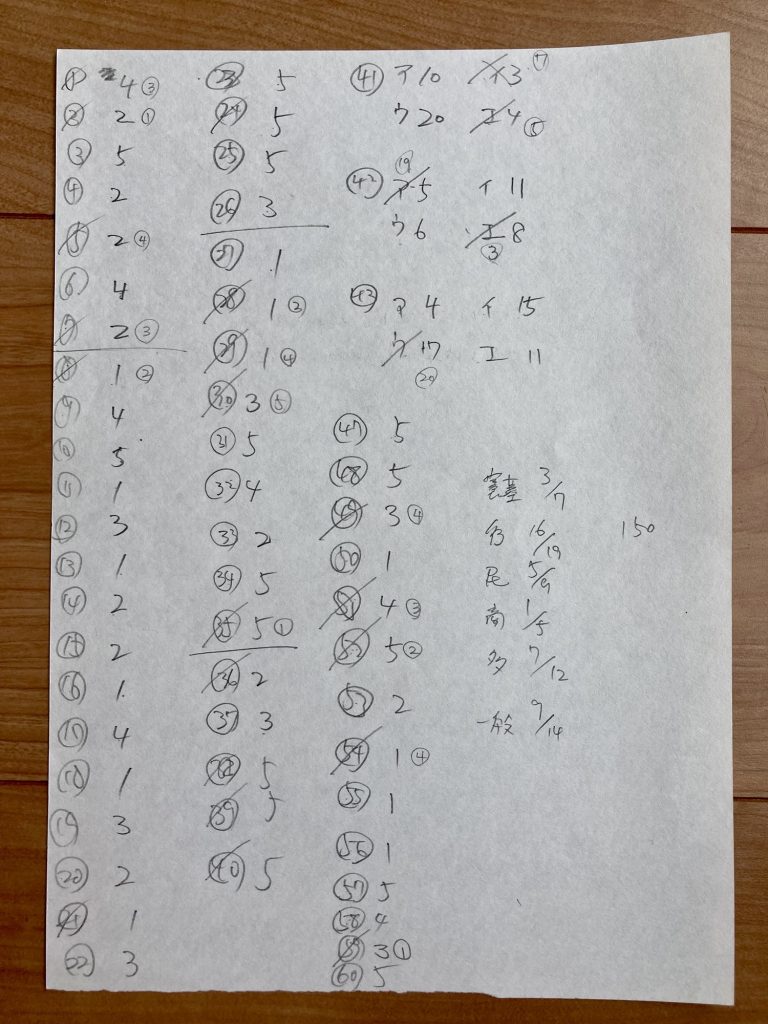 ① 4 ③
② 2 ①
③ 5
④ 2
⑤ 2 ④
⑥ 4
⑦ 2 ③
⑧ 1 ②
⑨ 4
⑩ 5
⑪ 1
⑫ 3
⑬ 1
⑭ 2
⑮ 2
⑯ 1
⑰ 4
⑱ 1
⑲ 3
⑳ 2
㉑ 1
㉒ 3
㉓ 5
㉔ 5
㉕ 5
㉖ 3
㉗ 1
㉘ 1 ②
㉙ 1 ④
㉚ 3 ⑤
㉛ 5
㉜ 4
㉝ 2
㉞ 5
㉟ 5 ①
㊱ 2
㊲ 3
㊳ 5
㊴ 5
㊵ 5
㊶ ア 10 イ 3 ⑰
ウ 20 エ 4 ⑤
⑲
㊷ ア 5 イ 11
ウ 6 エ 8
③
㊸ ア 4 イ 15
ウ 17 エ 11
⑳
㊼ 5
㊽ 5
㊾ 3 ④
㊿ 1
51 4 ③
52 5 ②
53 2
54 1 ④
55 1
56 1
57 5
58 4
59 3 ①
60 5
3/7
労 16/19 150
民 5/9
商 1/5
多 7/12
一般 9/14